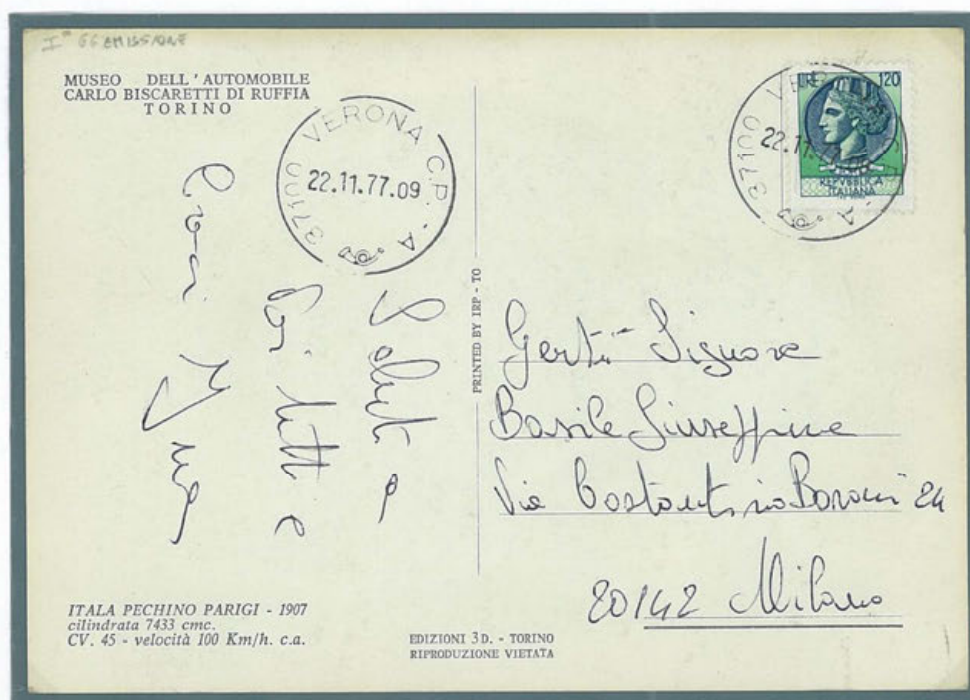 I° GG EMISSIONE
MUSEO DELL'AUTOMOBILE
CARLO BISCARETTI DI RUFFIA
TORINO
37100 VERONA C.P. - A
22.11.77.09
LIRE 120
REPVBBLICA
ITALIANA
37100 VER
22.11
Saluti a
tutti e
PRINTED BY IRP - TO
Gent. Signora
Basile Giuseppina
Via Costantino Baroni 24
20142 Milano
ITALA PECHINO PARIGI - 1907
cilindrata 7433 cmc.
CV. 45 - velocità 100 Km/h. c.a.
EDIZIONI 3D. - TORINO
RIPRODUZIONE VIETATA